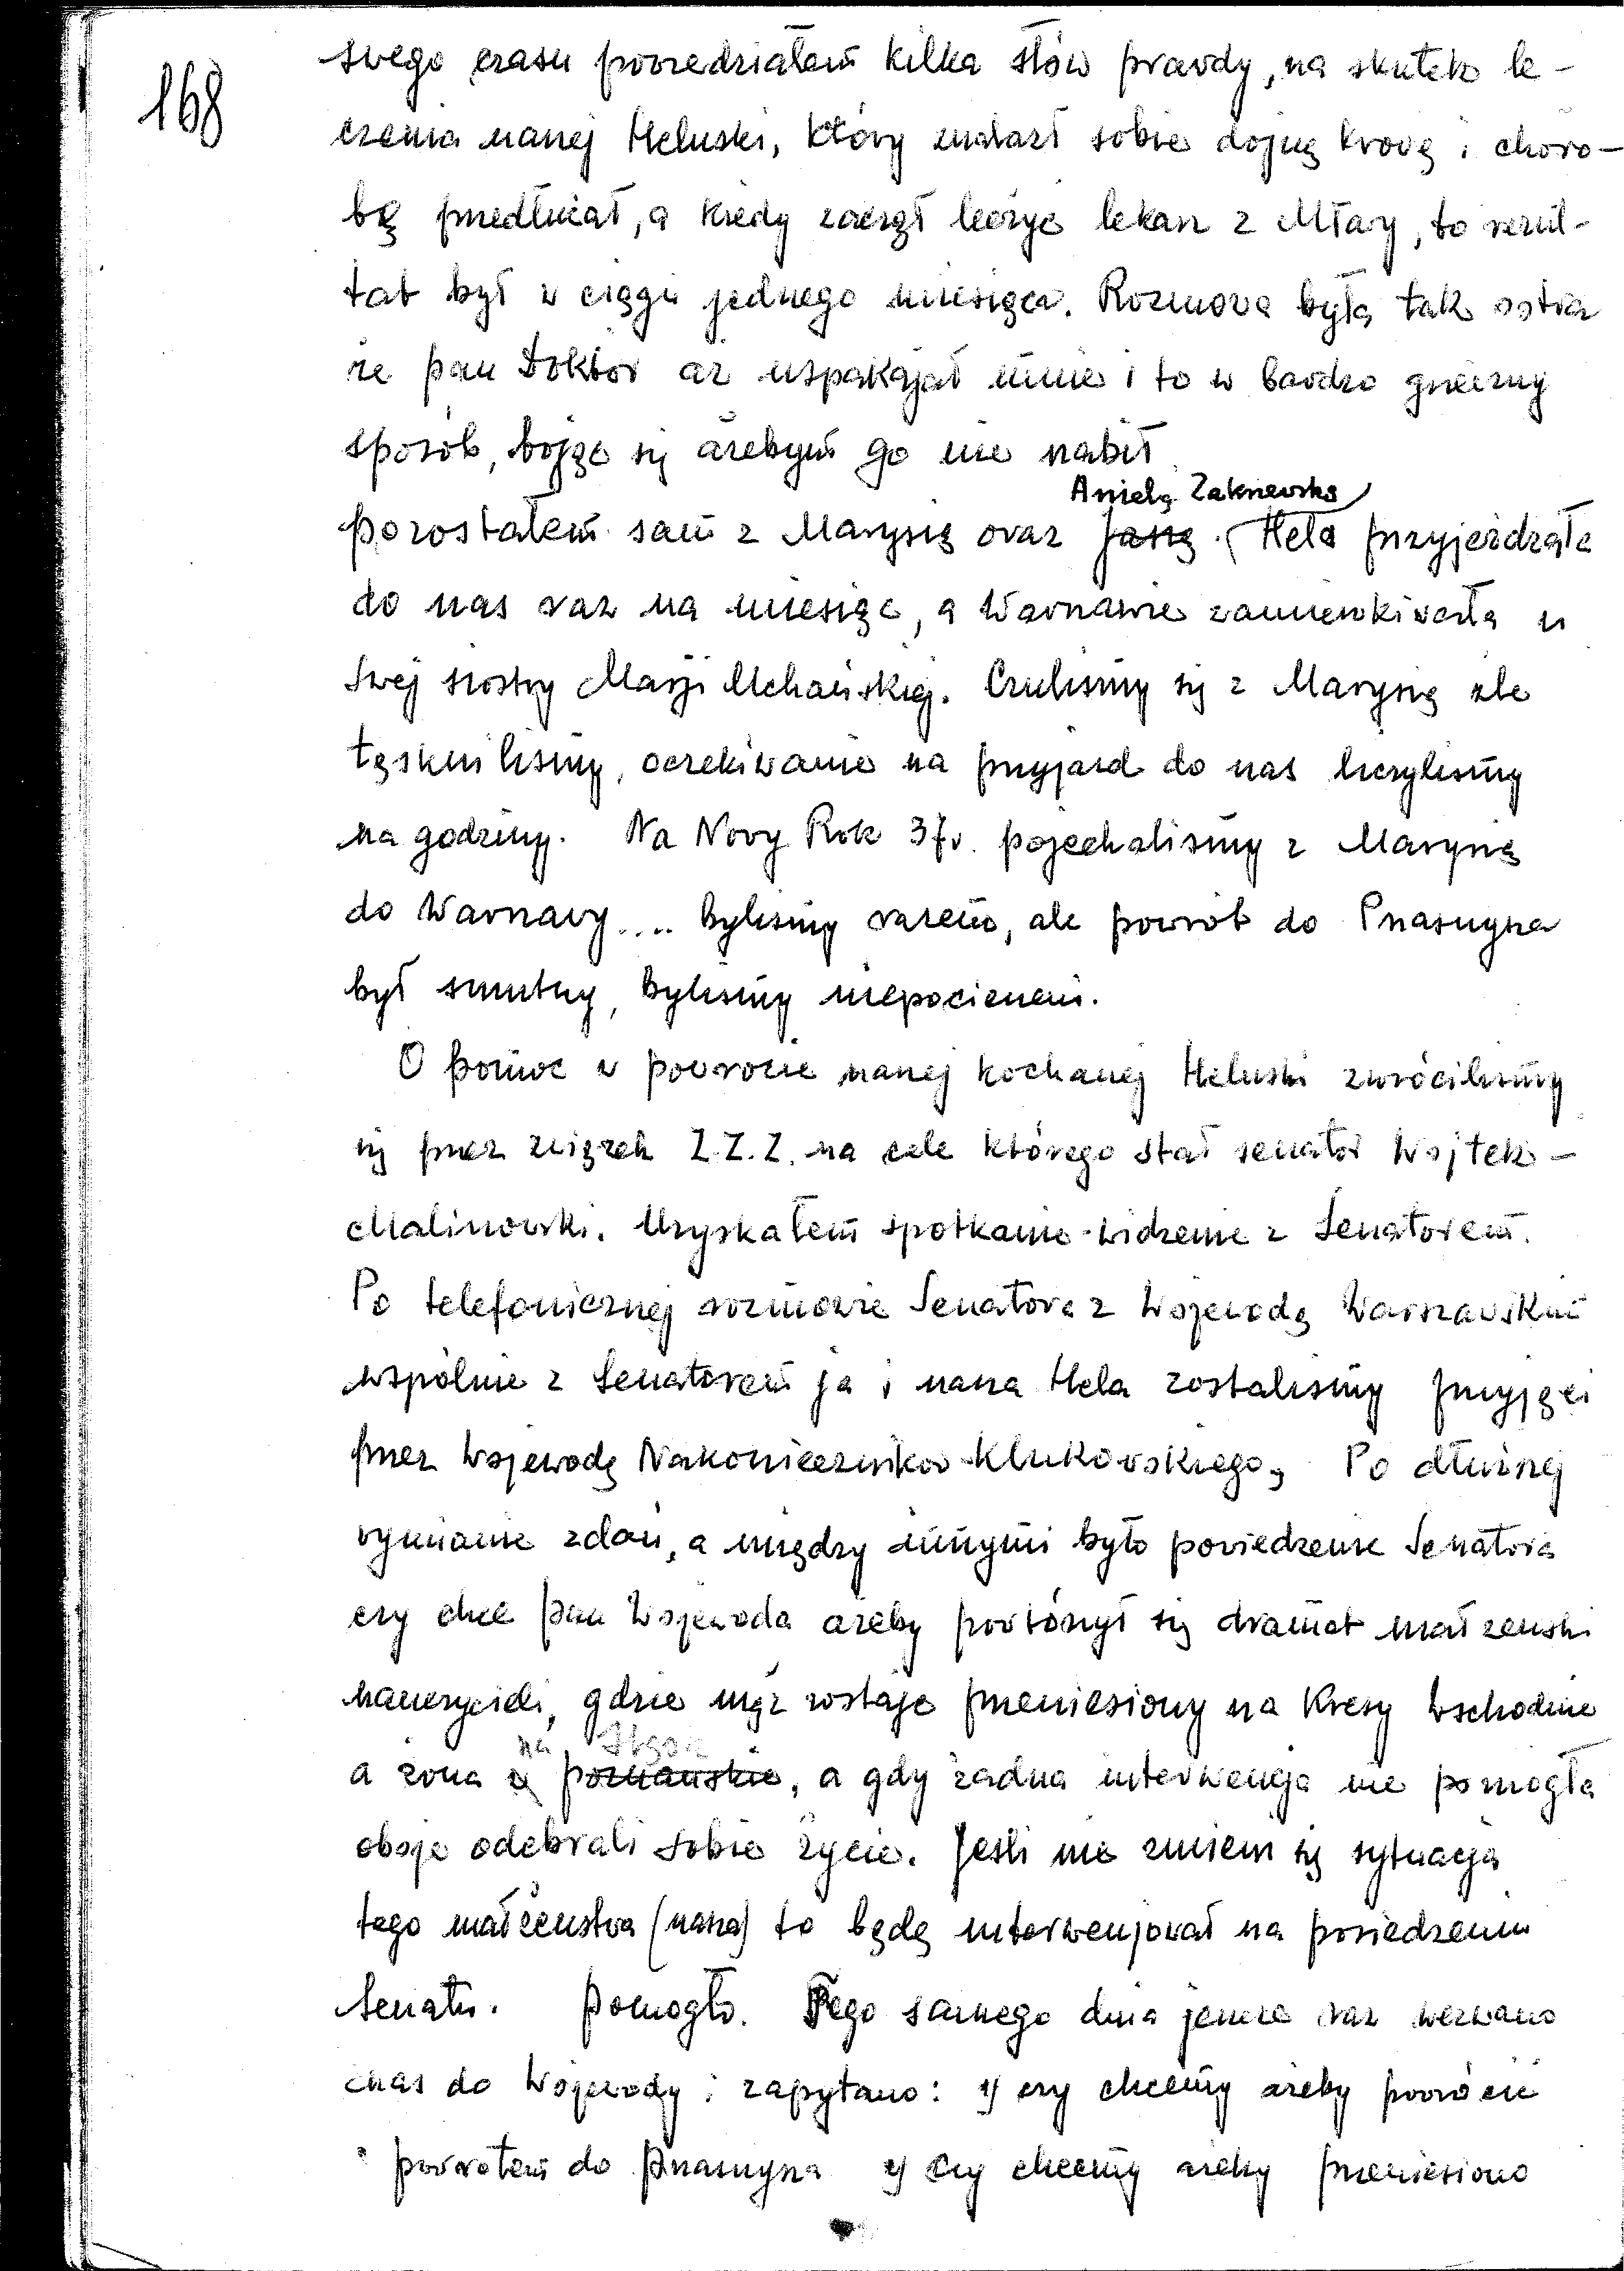 168
swego czasu powiedziałem kilka słów prawdy, na skutek le-
czenia naszej Heluski, który znalazł sobie dojną krowę i choro-
bę przedłużał, a kiedy zaczął leczyć lekarz z Mławy, to rezul-
tat był w ciągu jednego miesiąca. Rozmowa była tak ostra
że pan Doktór aż uspakajał mnie i to w bardzo grzeczny
sposób, bojąc się ażebym go nie nabił
Anielą Zakrzewską
pozostałem sam z Marysią oraz Jasią. Hela przyjeżdżała
do nas raz na miesiąc, a Warszawie zamieszkiwała u
swej siostry Marji Uchańskiej. Czuliśmy się z Marysią źle
tęskniliśmy, oczekiwanie na przyjazd do nas liczyliśmy
na godziny. Na Nowy Rok 37r. pojechaliśmy z Marysią
do Warszawy.... byliśmy razem, ale powrót do Przasnysza
był smutny, byliśmy niepocieszeni.
O pomoc w powrocie naszej kochanej Heluski zwróciliśmy
się przez związek Z.Z.Z. na cele którego stał senator Wojtek-
Malinowski. Uzyskałem spotkanie-widzenie z Senatorem.
Po telefonicznej rozmowie Senatora z Wojewodą Warszawskim
wspólnie z Senatorem ja i nasza Hela zostaliśmy przyjęci
przez Wojewodę Nakoniecznikow-Klukowskiego, Po dłuższej
wymianie zdań, a między innymi było powiedzenie Senatora
czy chce pan Wojewoda ażeby powtórzył się dramat małżeński
nauczycieli, gdzie mąż zostaje przeniesiony na Kresy Wschodnie
na
a żona w poznańskie, a gdy żadna interwencja nie pomogła
oboje odebrali sobie życie. Jeśli nie zmieni się sytuacja
tego małżeństwa (nasza) to będę interwenjował na posiedzeniu
Senatu. Pomogło. Tego samego dnia jeszcze raz wezwano
nas do Wojewody i zapytano: 1) czy chcemy ażeby powrócić
powrotem do Przasnysza 2) czy chcemy ażeby przeniesiono